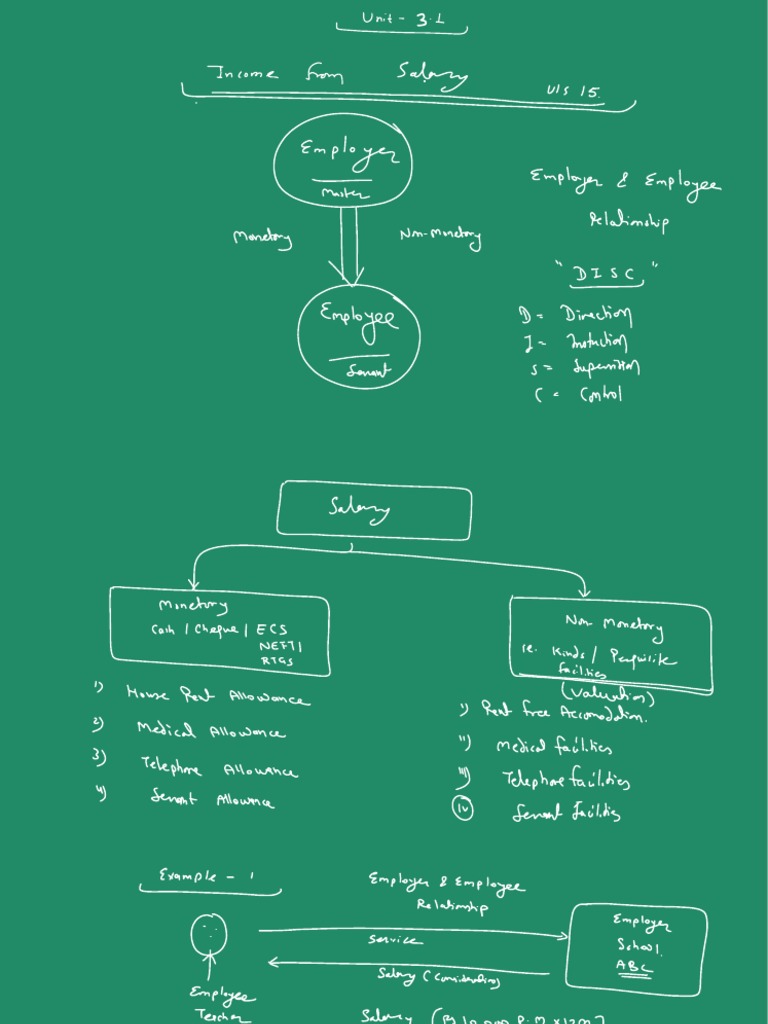 Unit - 3.1
Income from Salary
U/s 15.
Employer
Master
Monetory
Non-Monetory
Employee
Servant
Employer & Employee
Relationship
"DISC"
D = Direction
I = Instruction
S = Supervision
C = Control
Salary
Monetory
Cash / Cheque / ECS
NEFT /
RTGS
1) House Rent Allowance
2) Medical Allowance
3) Telephone Allowance
4) Servant Allowance
Non Monetory
ie. Kinds / Perquisite
facilities
(Valuation)
i) Rent free Accomodation.
ii) Medical facilities
iii) Telephone facilities
iv Servant facilities
Example - 1
Employer & Employee
Relationship
Service
Salary (Consideration)
Employer
School.
ABC
Employee
Teacher
Salary (Rs 10,000 P.M x 12M)